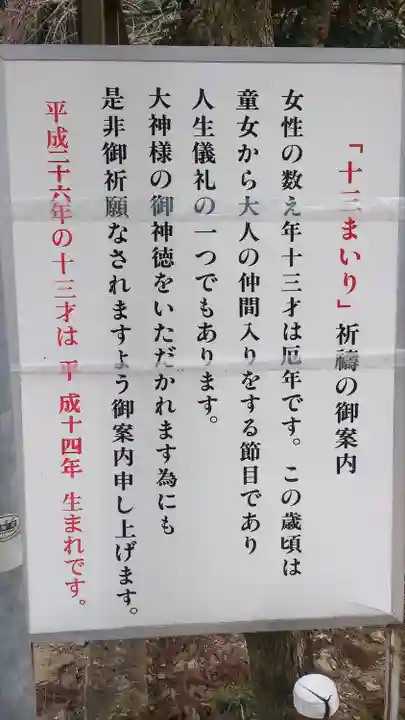 「十三まいり」祈禱の御案内
女性の数え年十三才は厄年です。この歳頃は
童女から大人の仲間入りをする節目であり
人生儀礼の一つでもあります。
大神様の御神徳をいただかれます為にも
是非御祈願なされますよう御案内申し上げます。
平成二十六年の十三才は 平成十四年 生まれです。